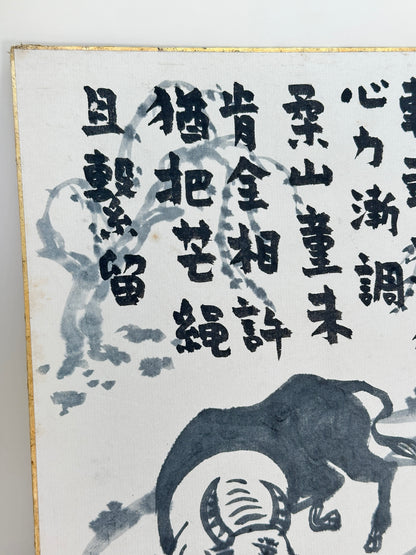 心力漸調
柔山童未
肯全相許
猶把芒繩
且繫留